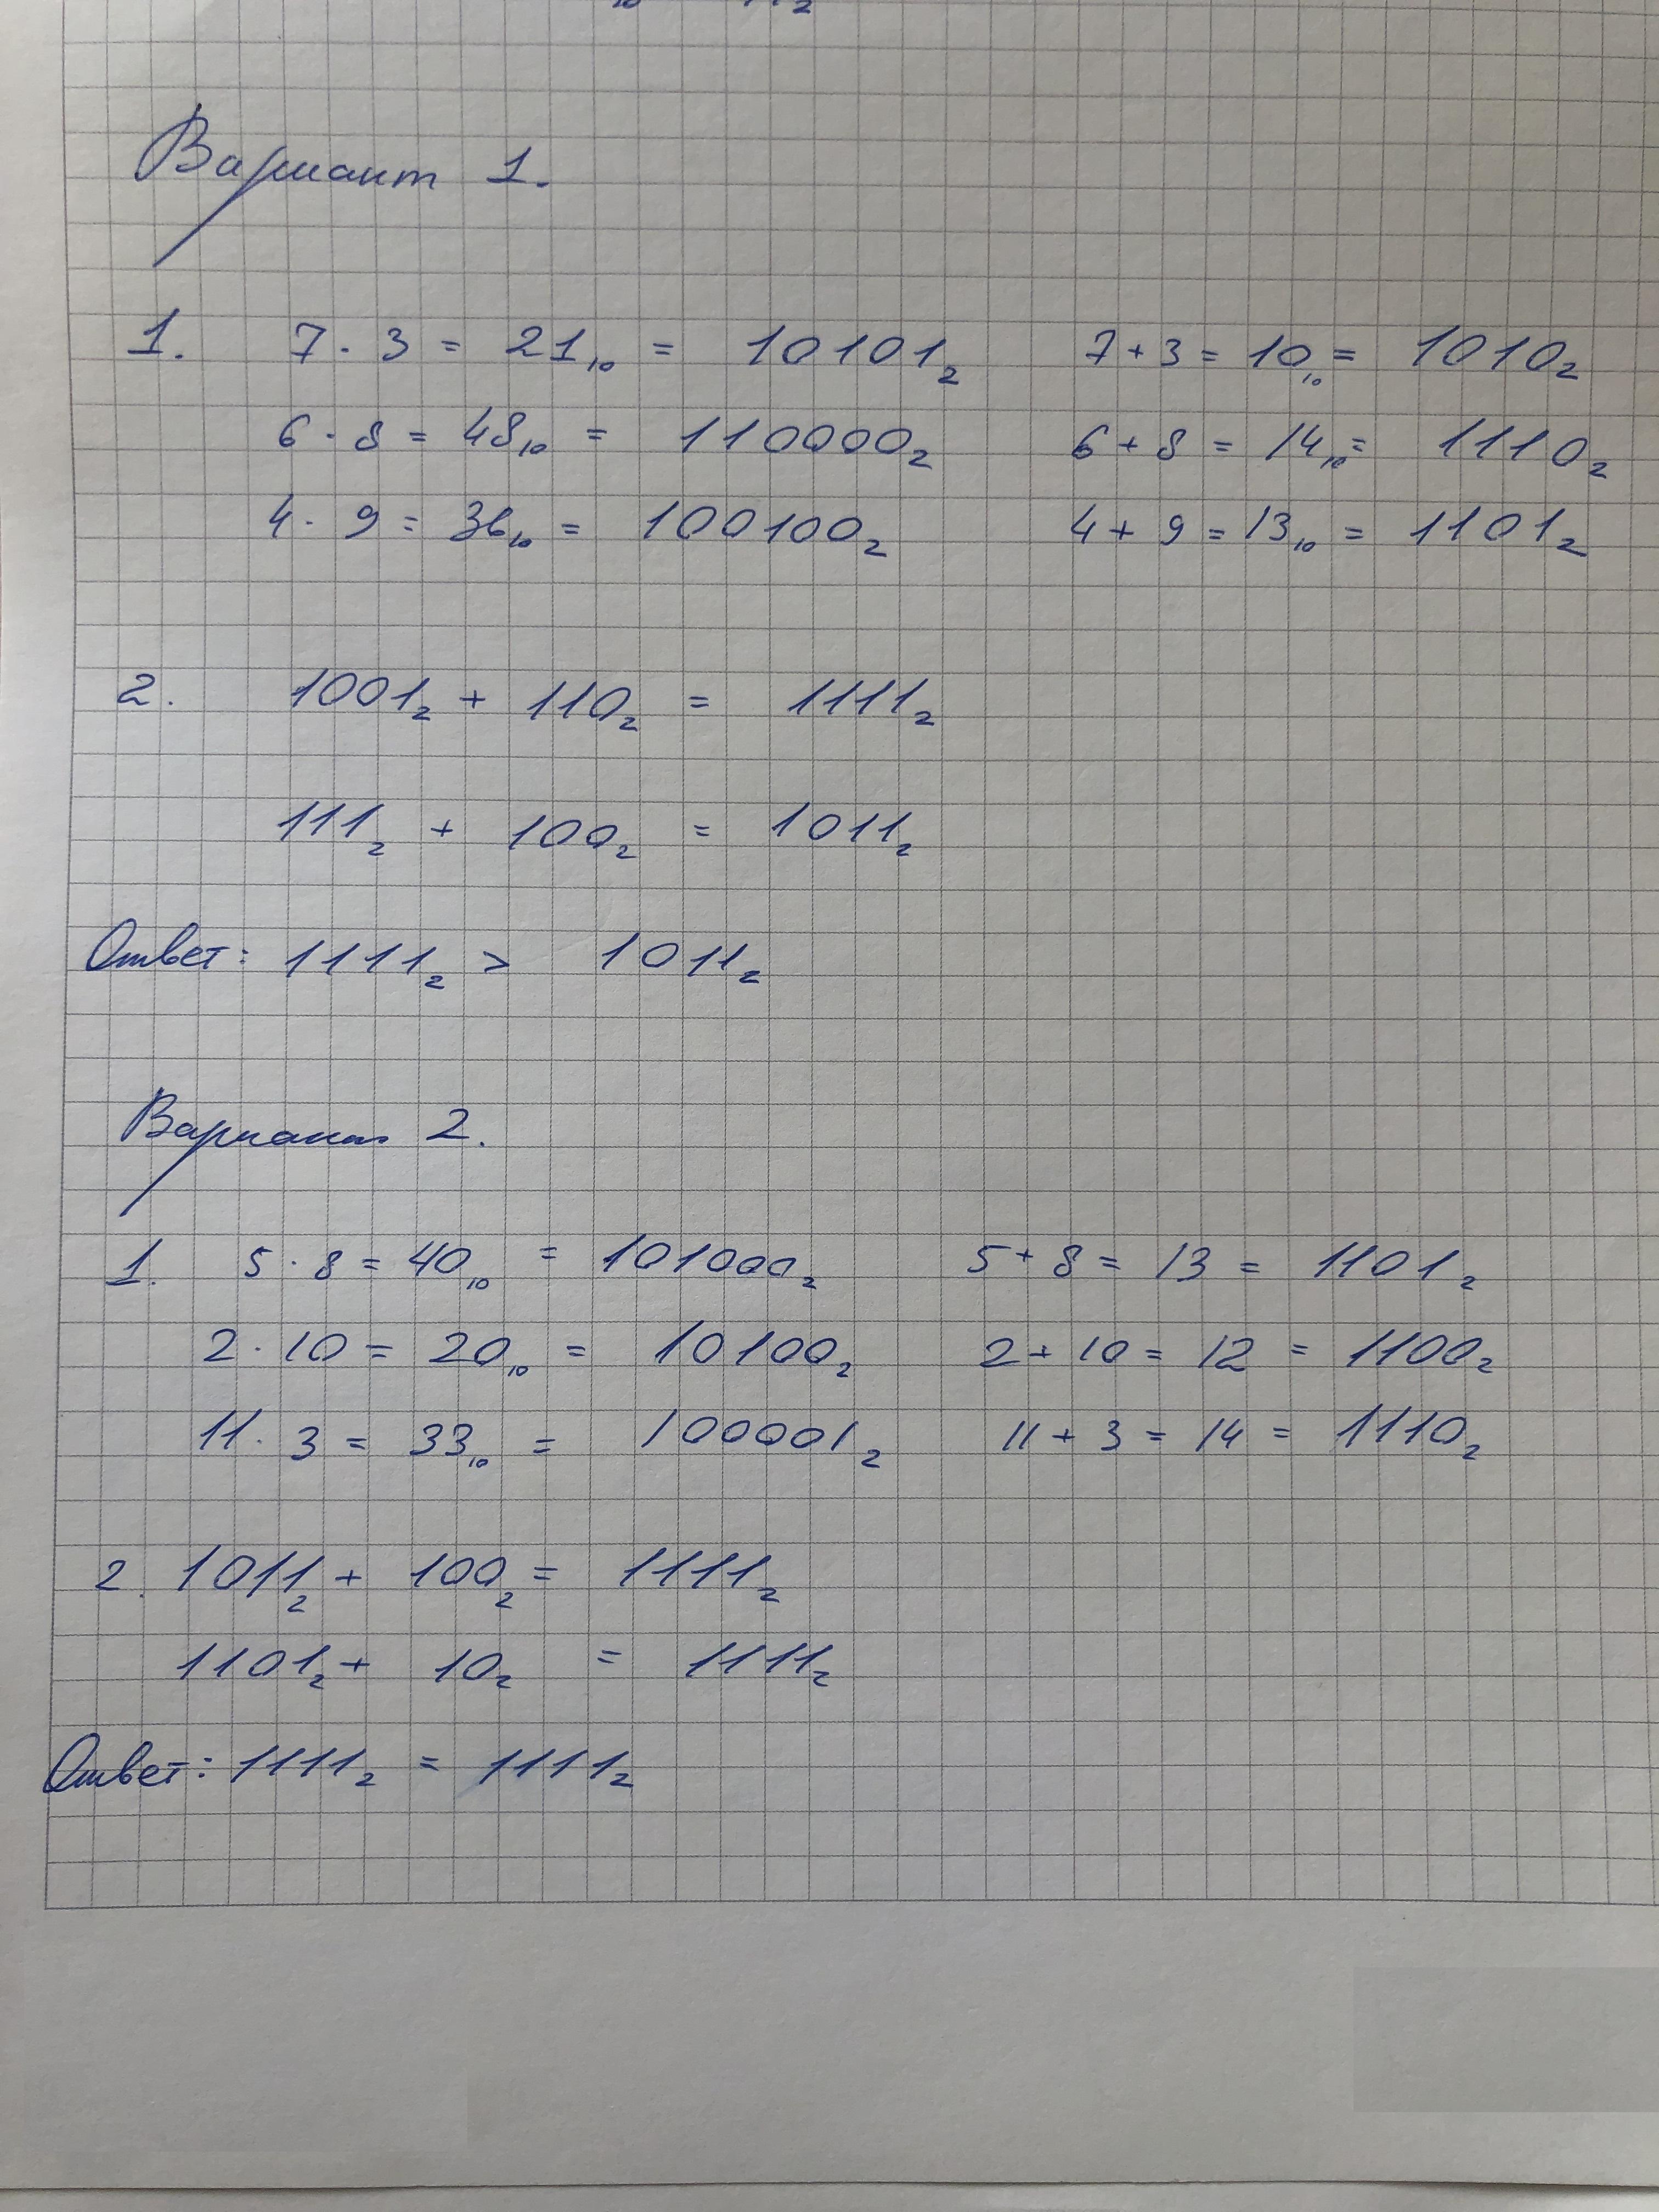 Вариант 1.
1. 7 · 3 = 21₁₀ = 10101₂ 7 + 3 = 10₁₀ = 1010₂
6 · 8 = 48₁₀ = 110000₂ 6 + 8 = 14₁₀ = 1110₂
4 · 9 = 36₁₀ = 100100₂ 4 + 9 = 13₁₀ = 1101₂
2. 1001₂ + 110₂ = 1111₂
111₂ + 100₂ = 1011₂
Ответ: 1111₂ > 1011₂
Вариант 2.
1. 5 · 8 = 40₁₀ = 101000₂ 5 + 8 = 13 = 1101₂
2 · 10 = 20₁₀ = 10100₂ 2 + 10 = 12 = 1100₂
11 · 3 = 33₁₀ = 100001₂ 11 + 3 = 14 = 1110₂
2. 1011₂ + 100₂ = 1111₂
1101₂ + 10₂ = 1111₂
Ответ: 1111₂ = 1111₂